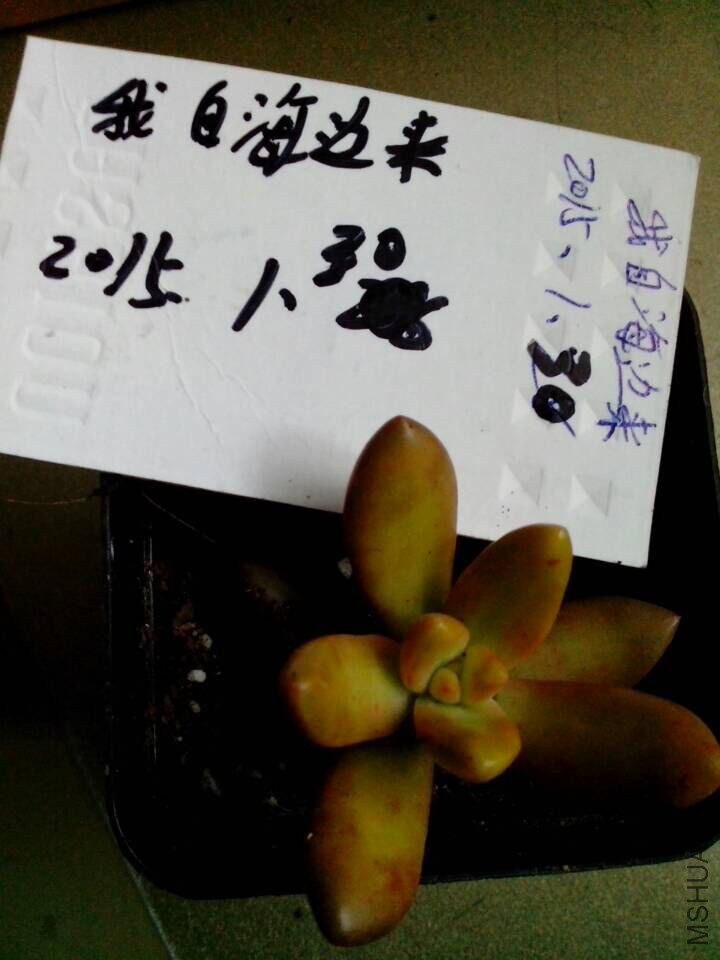 我自海边来
2015 1、30
我自海边来
2015、1、30
MSHUA